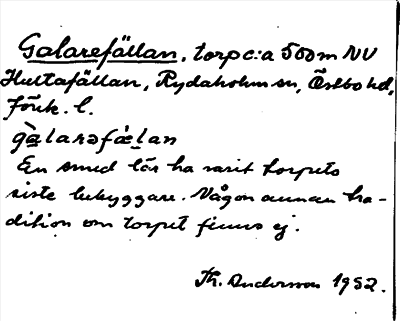 Galarefällan, torp c:a 500 m NV
Hultafällan, Rydaholms sn, Östbo hd,
Jönk. l.
gàlarəfál̠an
En smed lär ha varit torpets
siste bebyggare. Någon annan tra-
dition om torpet finns ej.
Th. Andersson 1952.